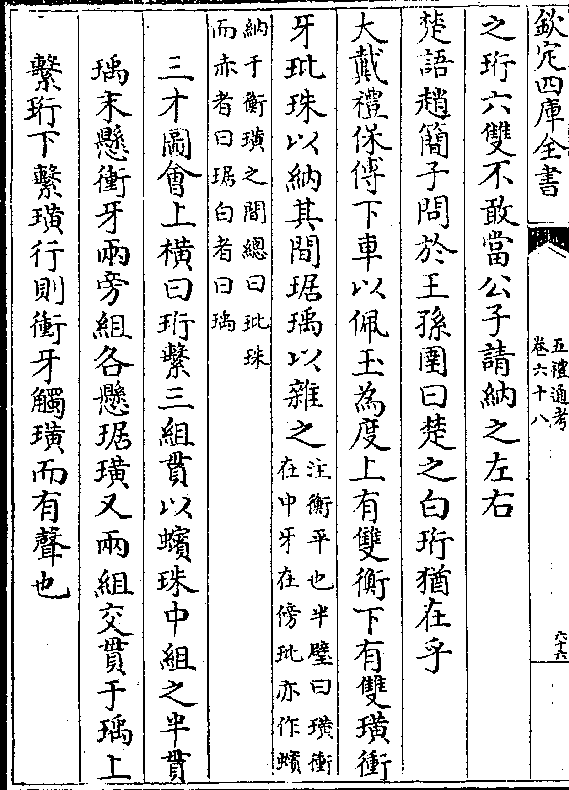 欽定四庫全書
五禮通考
卷六十八
六十六
之珩六雙不敢當公子請納之左右
楚語趙簡子問於王孫圉曰楚之白珩猶在乎
大戴禮保傅下車以佩玉為度上有雙衡下有雙璜衝
牙玭珠以納其間琚瑀以雜之
注衡平也半璧曰璜衝
在中牙在傍玭亦作蠙
納于衡璜之間總曰玭珠
而赤者曰琚白者曰瑀
三才圖會上橫曰珩繫三組貫以蠙珠中組之半貫
瑀末懸衝牙兩旁組各懸琚璜又兩組交貫于瑀上
繫珩下繫璜行則衝牙觸璜而有聲也